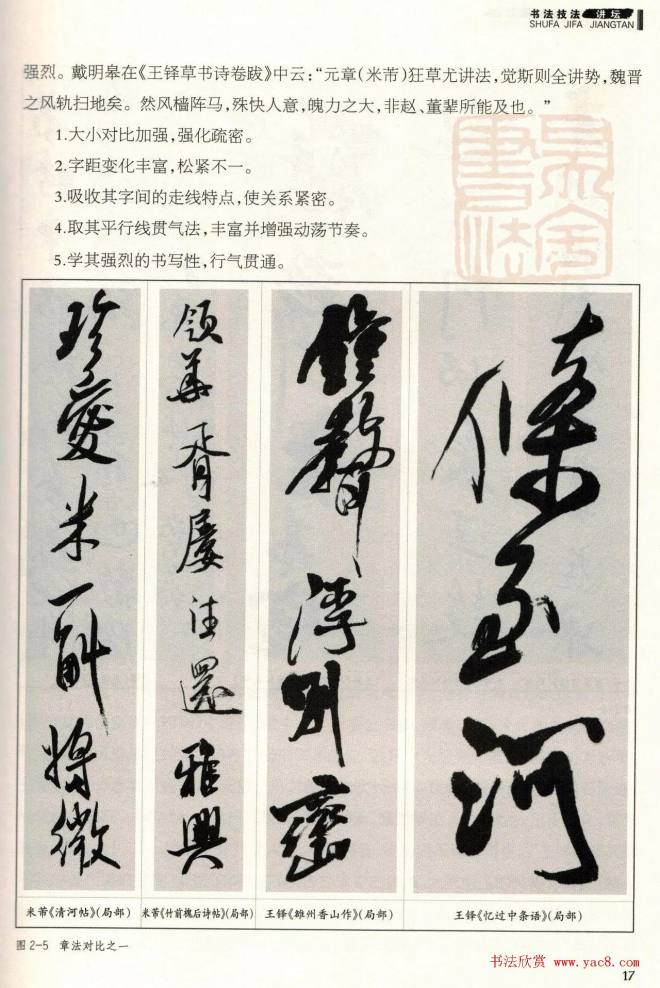 书法技法 讲坛
SHUFA JIFA JIANGTAN
强烈。戴明皋在《王铎草书诗卷跋》中云：“元章（米芾）狂草尤讲法，觉斯则全讲势，魏晋
之风轨扫地矣。然风樯阵马，殊快人意，魄力之大，非赵、董辈所能及也。”
1.大小对比加强，强化疏密。
2.字距变化丰富，松紧不一。
3.吸收其字间的走线特点，使关系紧密。
4.取其平行线贯气法，丰富并增强动荡节奏。
5.学其强烈的书写性，行气贯通。
珍愛米一斛將微
領華胥屢往還雅興
鐘聲浮別巒
條至河
米芾《清河帖》（局部）
米芾《竹前槐后诗帖》（局部）
王铎《雒州香山作》（局部）
王铎《忆过中条语》（局部）
图2-5 章法对比之一
书法欣赏 www.yac8.com
17